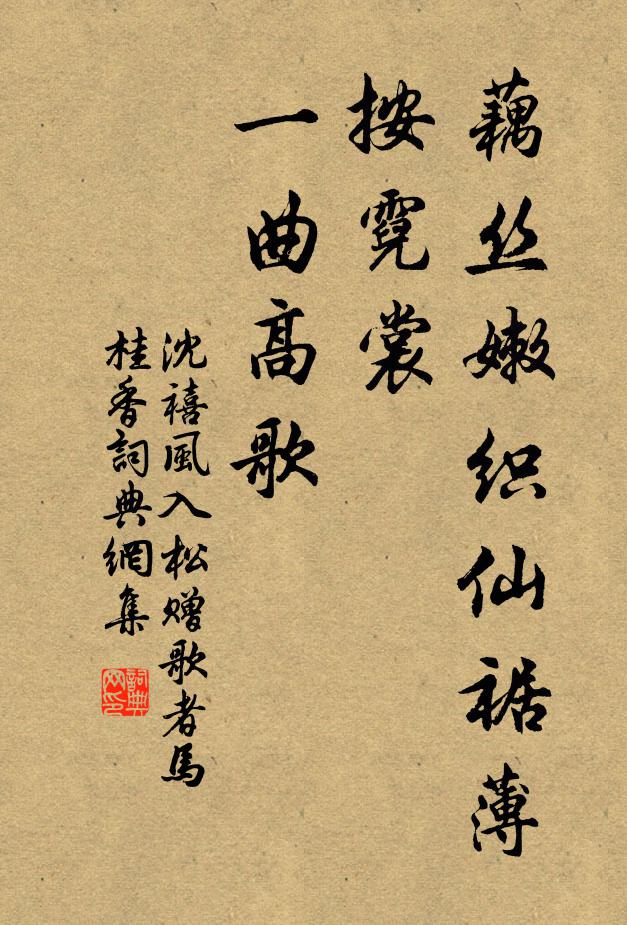 藕丝嫩织仙裾薄
按霓裳
一曲高歌
沈禧風入松赠歌者馬
桂香詞典網集
詞典
网印